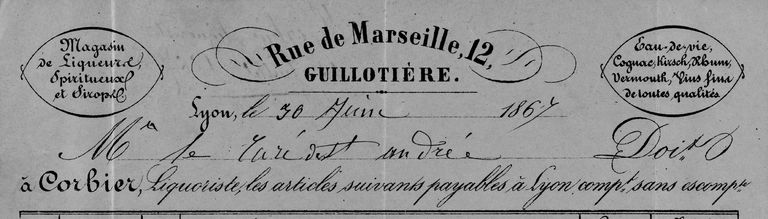 Magasin
de Liqueurs,
Spiritueux
et Sirops.
Rue de Marseille, 12,
GUILLOTIÈRE.
Eau-de-vie,
Cognac, Kirsch, Rhum,
Vermouth, Vins fins
de toutes qualités
Lyon, le 30 Juin 1867
Mr le Curé de St andrée Doit
à Corbier, Liquoriste, les articles suivants payables à Lyon compt. sans escompte